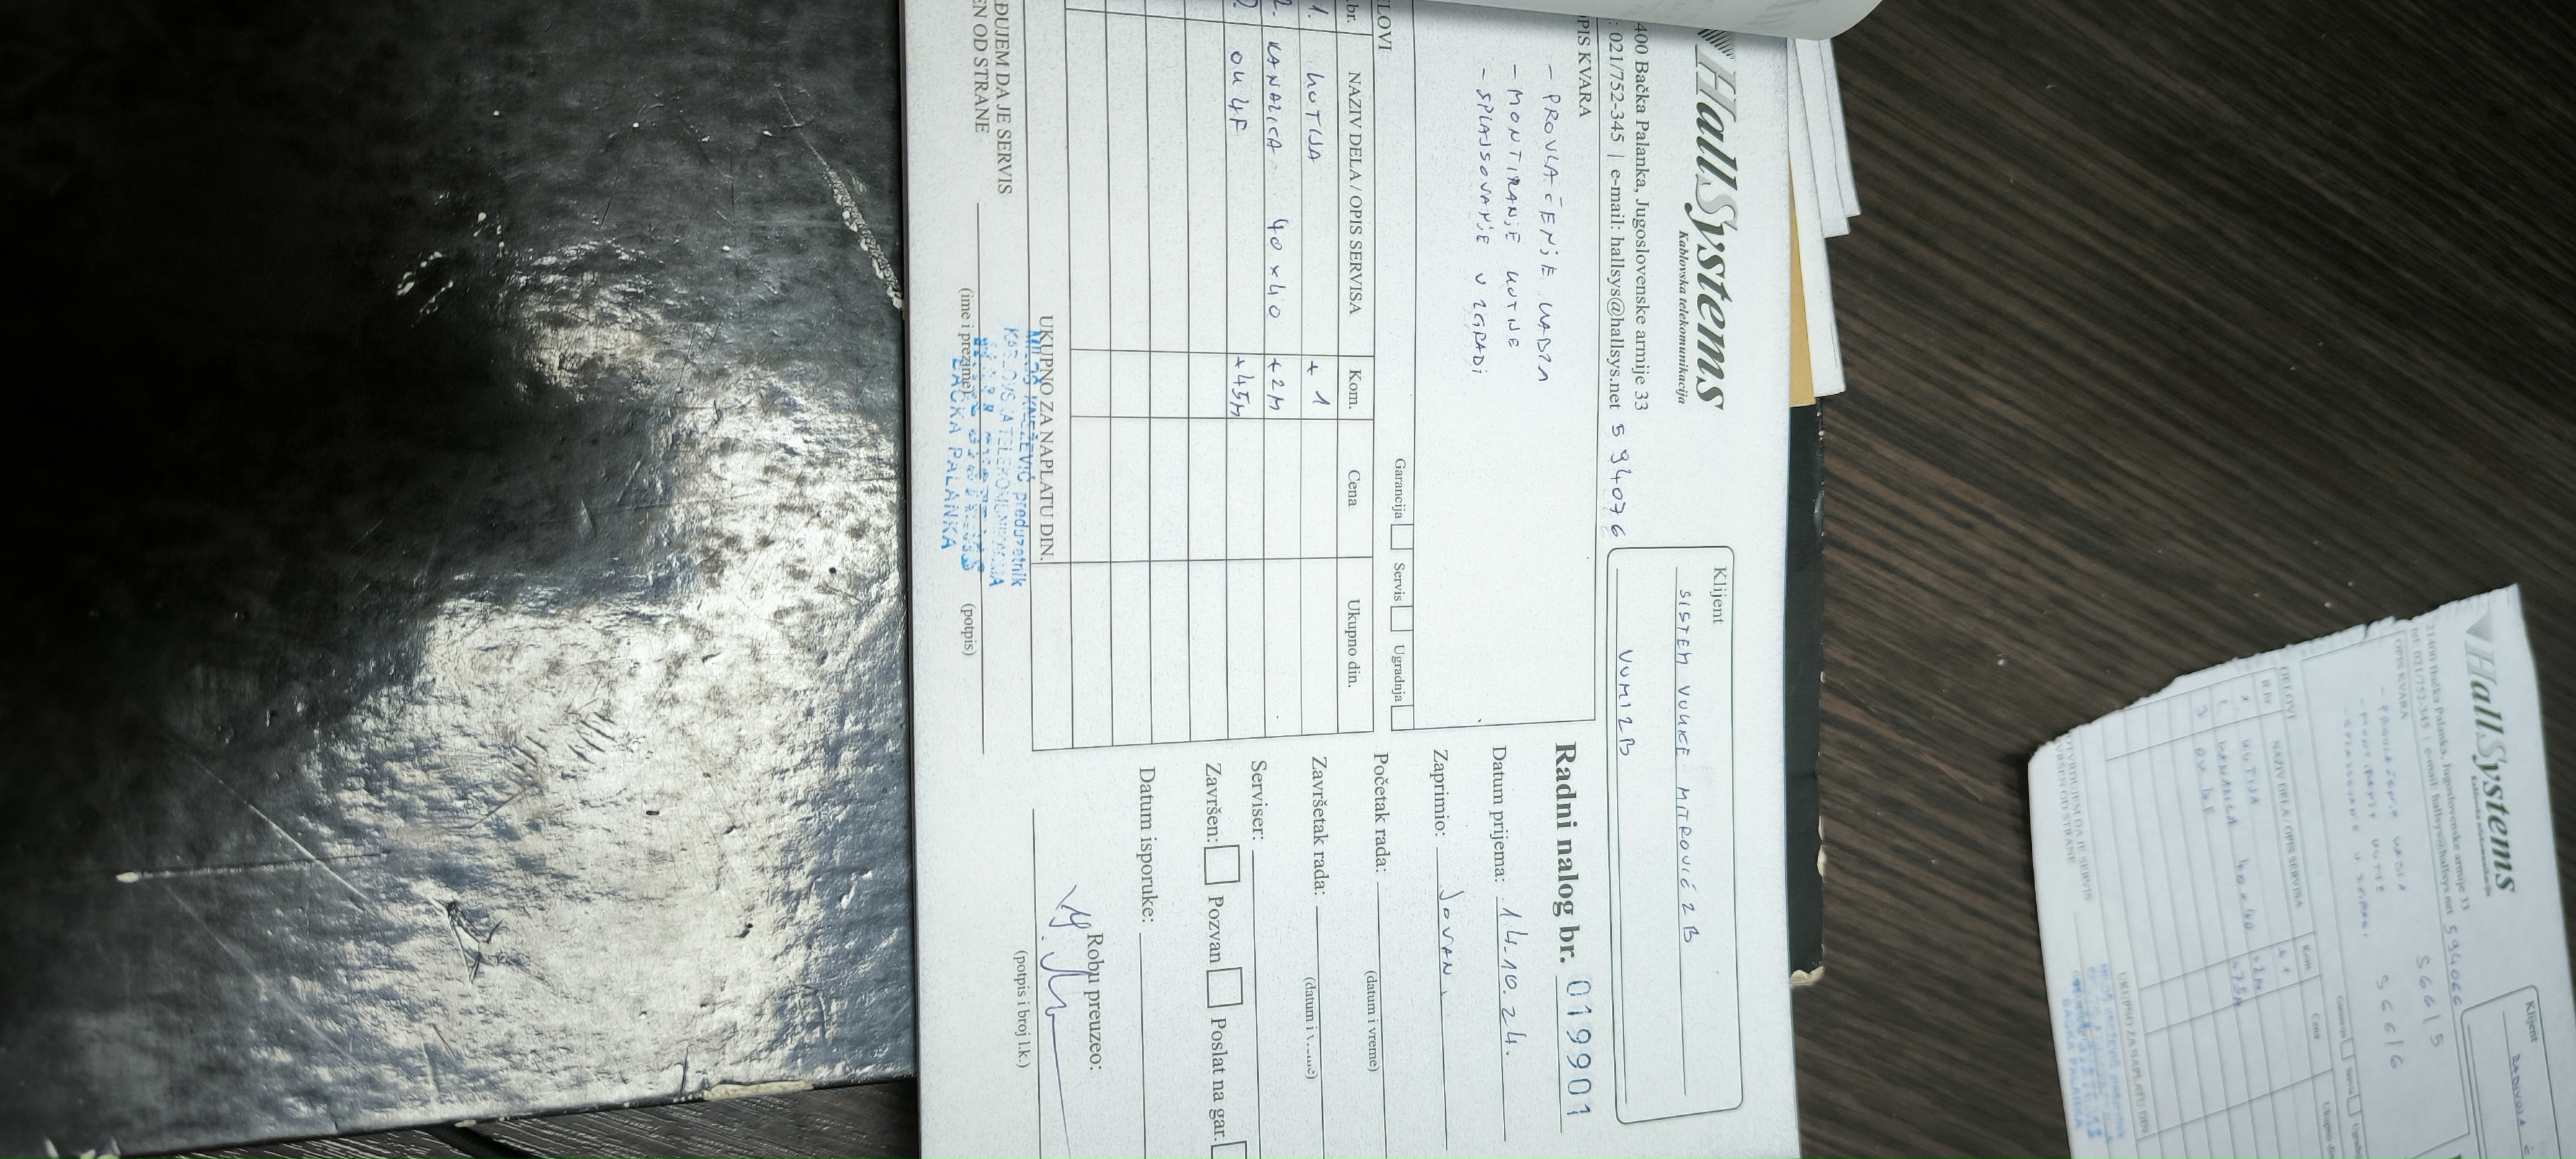 HallSystems
Kablovska telekomunikacija
400 Bačka Palanka, Jugoslovenske armije 33
: 021/752-345 | e-mail: hallsys@hallsys.net 5940776
Klijent
SISTEM VUKICE MITROVIĆ 2B
VUMI2B
PIS KVARA
- PROVLAČENJE KABLA
- MONTIRANJE KUTIJE
- SPLAJSOVANJE U ZGRADI
Radni nalog br. 019901
Datum prijema: 14.10.24.
Zaprimio: JOVAN.
Početak rada:
(datum i vreme)
Završetak rada:
Serviser:
Završen: Pozvan Poslat na gar.
Datum isporuke:
Robu preuzeo:
(potpis i broj l.k.)
LOVI
Garancija Servis Ugradnja
br. NAZIV DELA / OPIS SERVISA Kom. Cena Ukupno din.
1. KUTIJA +1
2. KANALICA 40x40 +2M
OK 4F +45M
UKUPNO ZA NAPLATU DIN.
ĐUJEM DA JE SERVIS
EN OD STRANE
(ime i prezime) (potpis)
KNEŽEVIĆ preduzetnik
BAČKA PALANKA
HallSystems
21400 Bačka Palanka, Jugoslovenske armije 33
tel: 021/752-345 | e-mail: hallsys@hallsys.net
Klijent
OPIS KVARA
DELOVI
NAZIV DELA / OPIS SERVISA Kom. Cena
KUTIJA
KANALICA 40x40